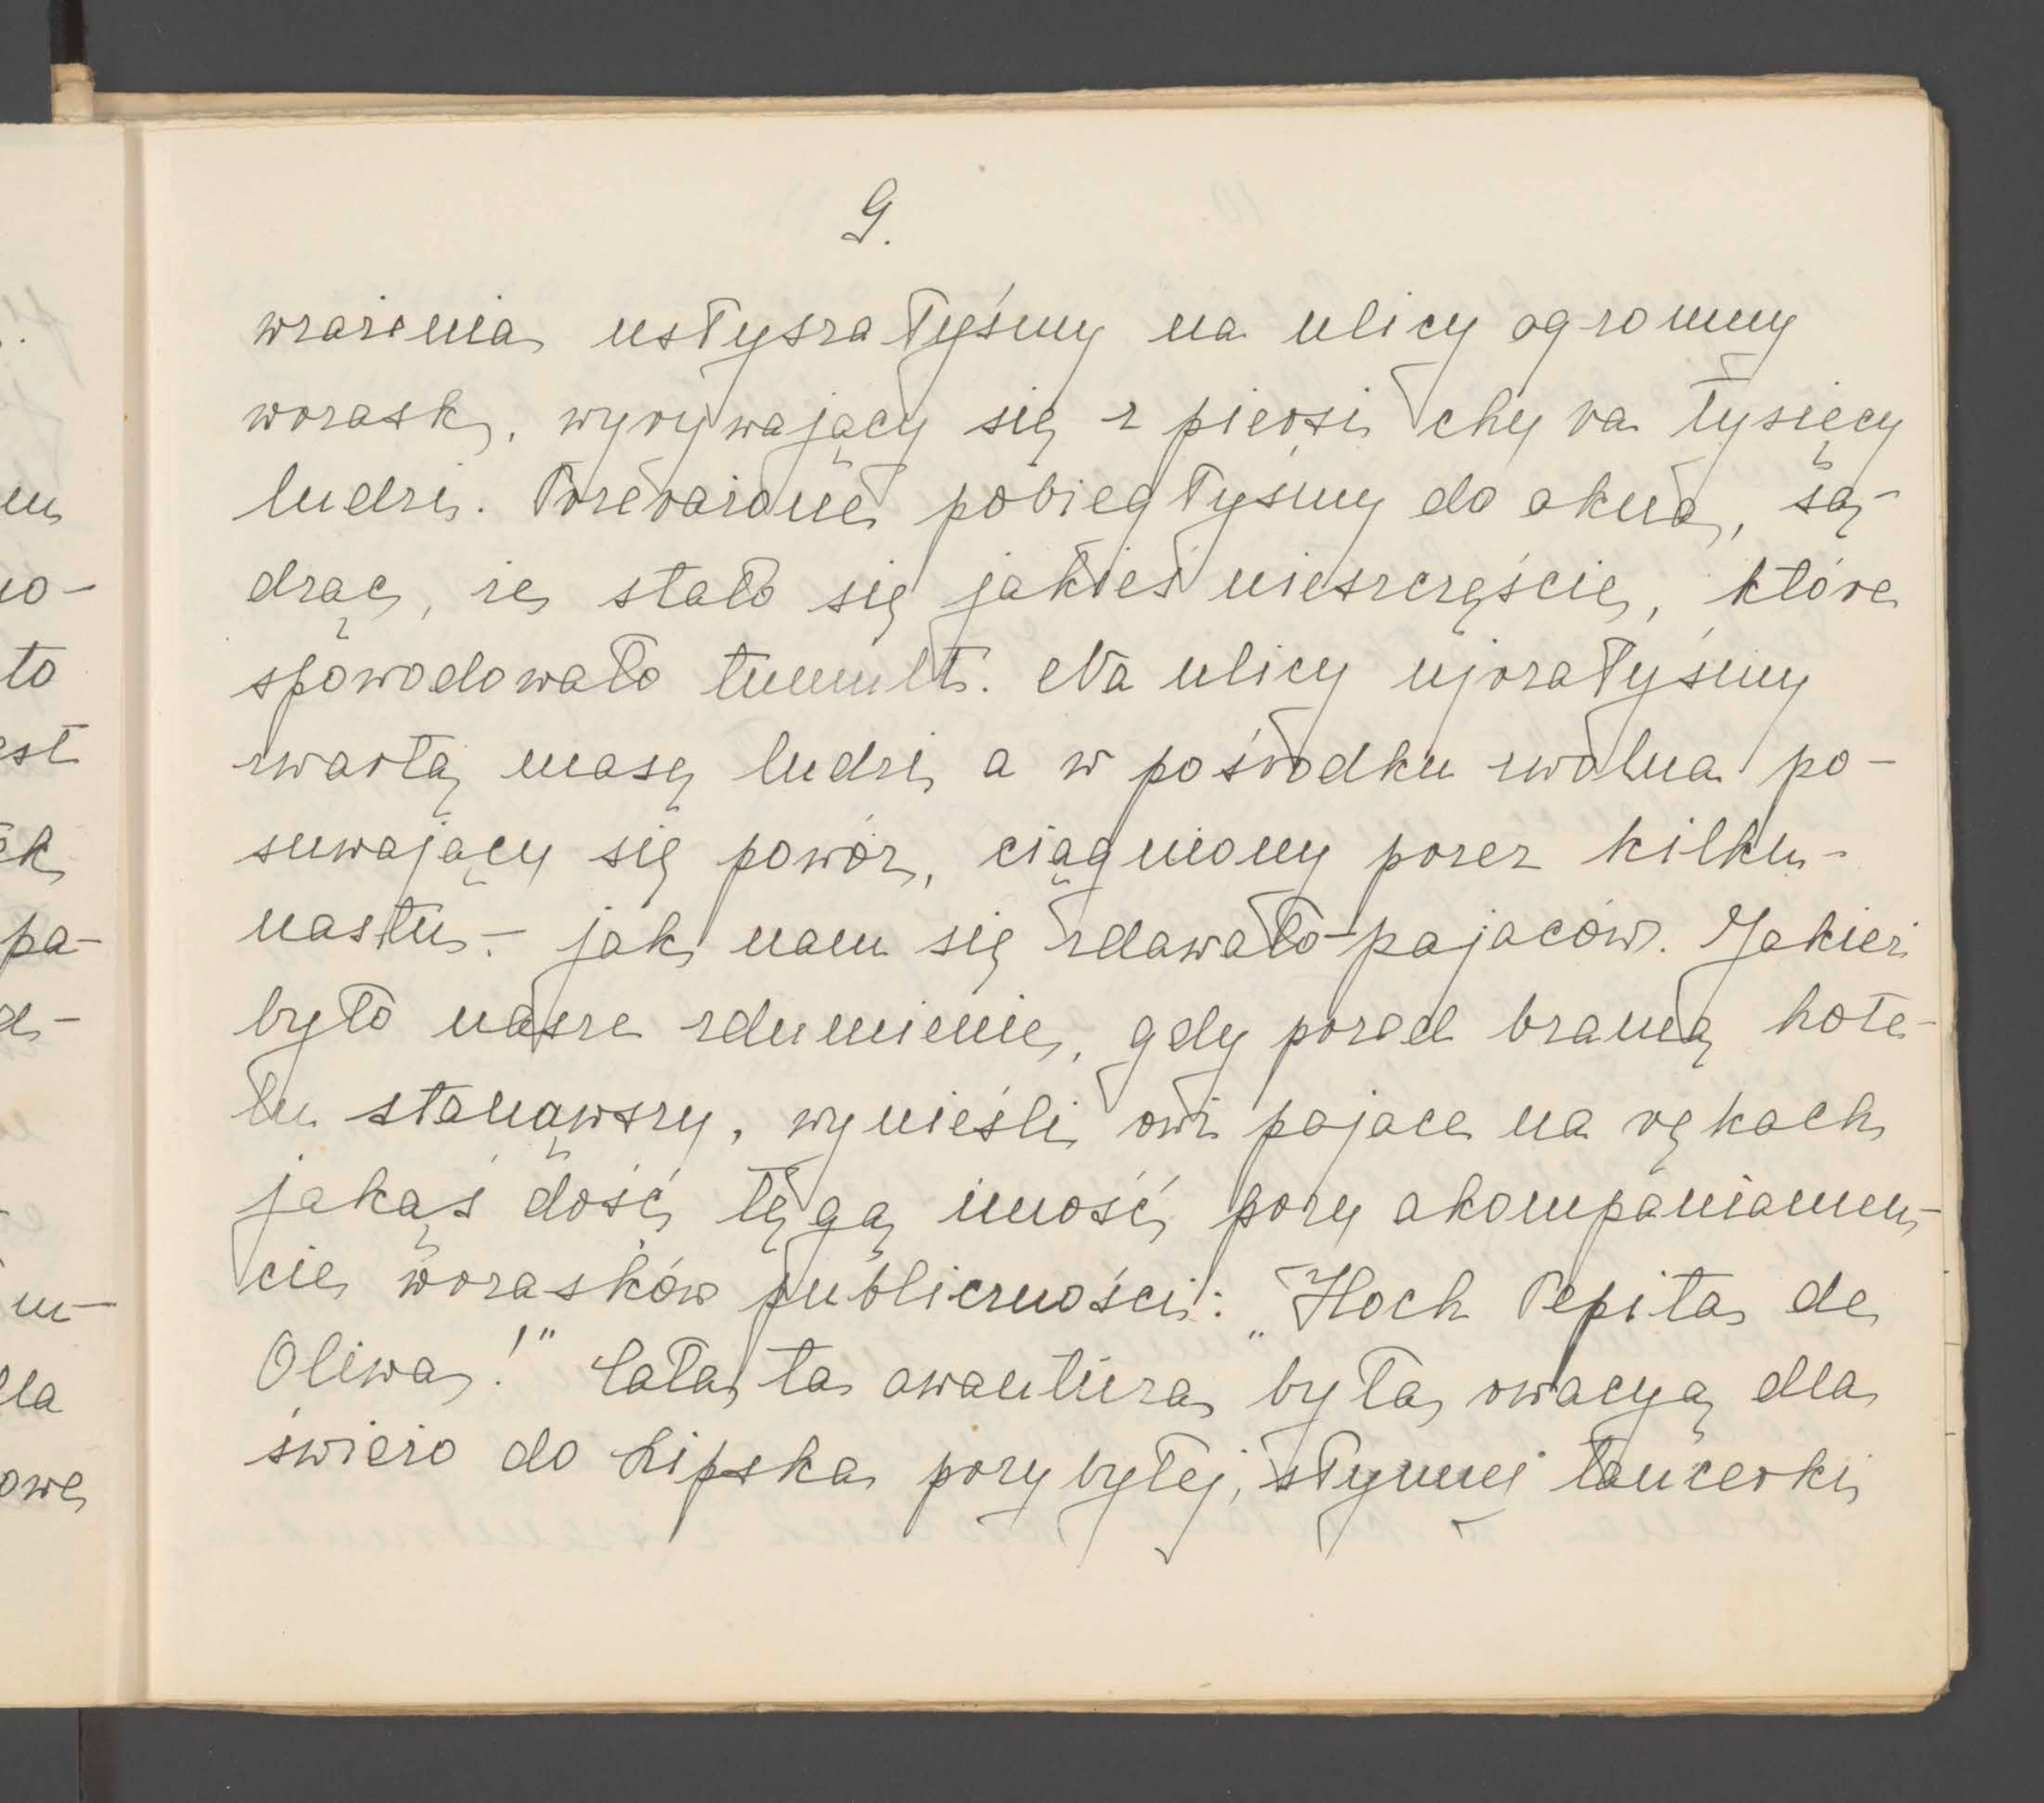 9.
wrażenia usłyszałyśmy na ulicy ogromny
wrzask, wyrywający się z piersi chyba tysięcy
ludzi. Przerażone pobiegłyśmy do okna, są-
dząc, że stało się jakieś nieszczęście, które
spowodowało tumult. Na ulicy ujrzałyśmy
zwartą masę ludzi, a w pośrodku zwolna po-
suwający się powóz, ciągniony przez kilku-
nastu - jak nam się zdawało - pajaców. Jakież
było nasze zdumienie, gdy przed bramą hote-
lu stanąwszy, wynieśli owi pajace na rękach
jakąś dość tęgą imość przy akompaniamen-
cie wrzasków publiczności: „Hoch Pepita de
Oliwa!" Cała ta awantura była owacyą dla
świeżo do Lipska przybyłej, słynnej tancerki